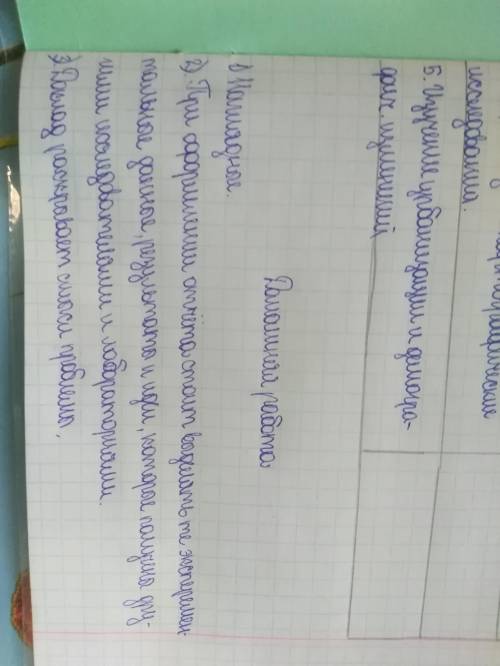 картографические
исследования.
5. Изучение урбанизации и демогра-
фич. изменений
Домашняя работа
1) Наглядное.
2) При оформлении отчёта стоит выделить те эксперемен-
тальные данные, результаты и идеи, которые получены дру-
гими исследователями и лабораториями.
3) Доклад раскрывает смысл проблемы,